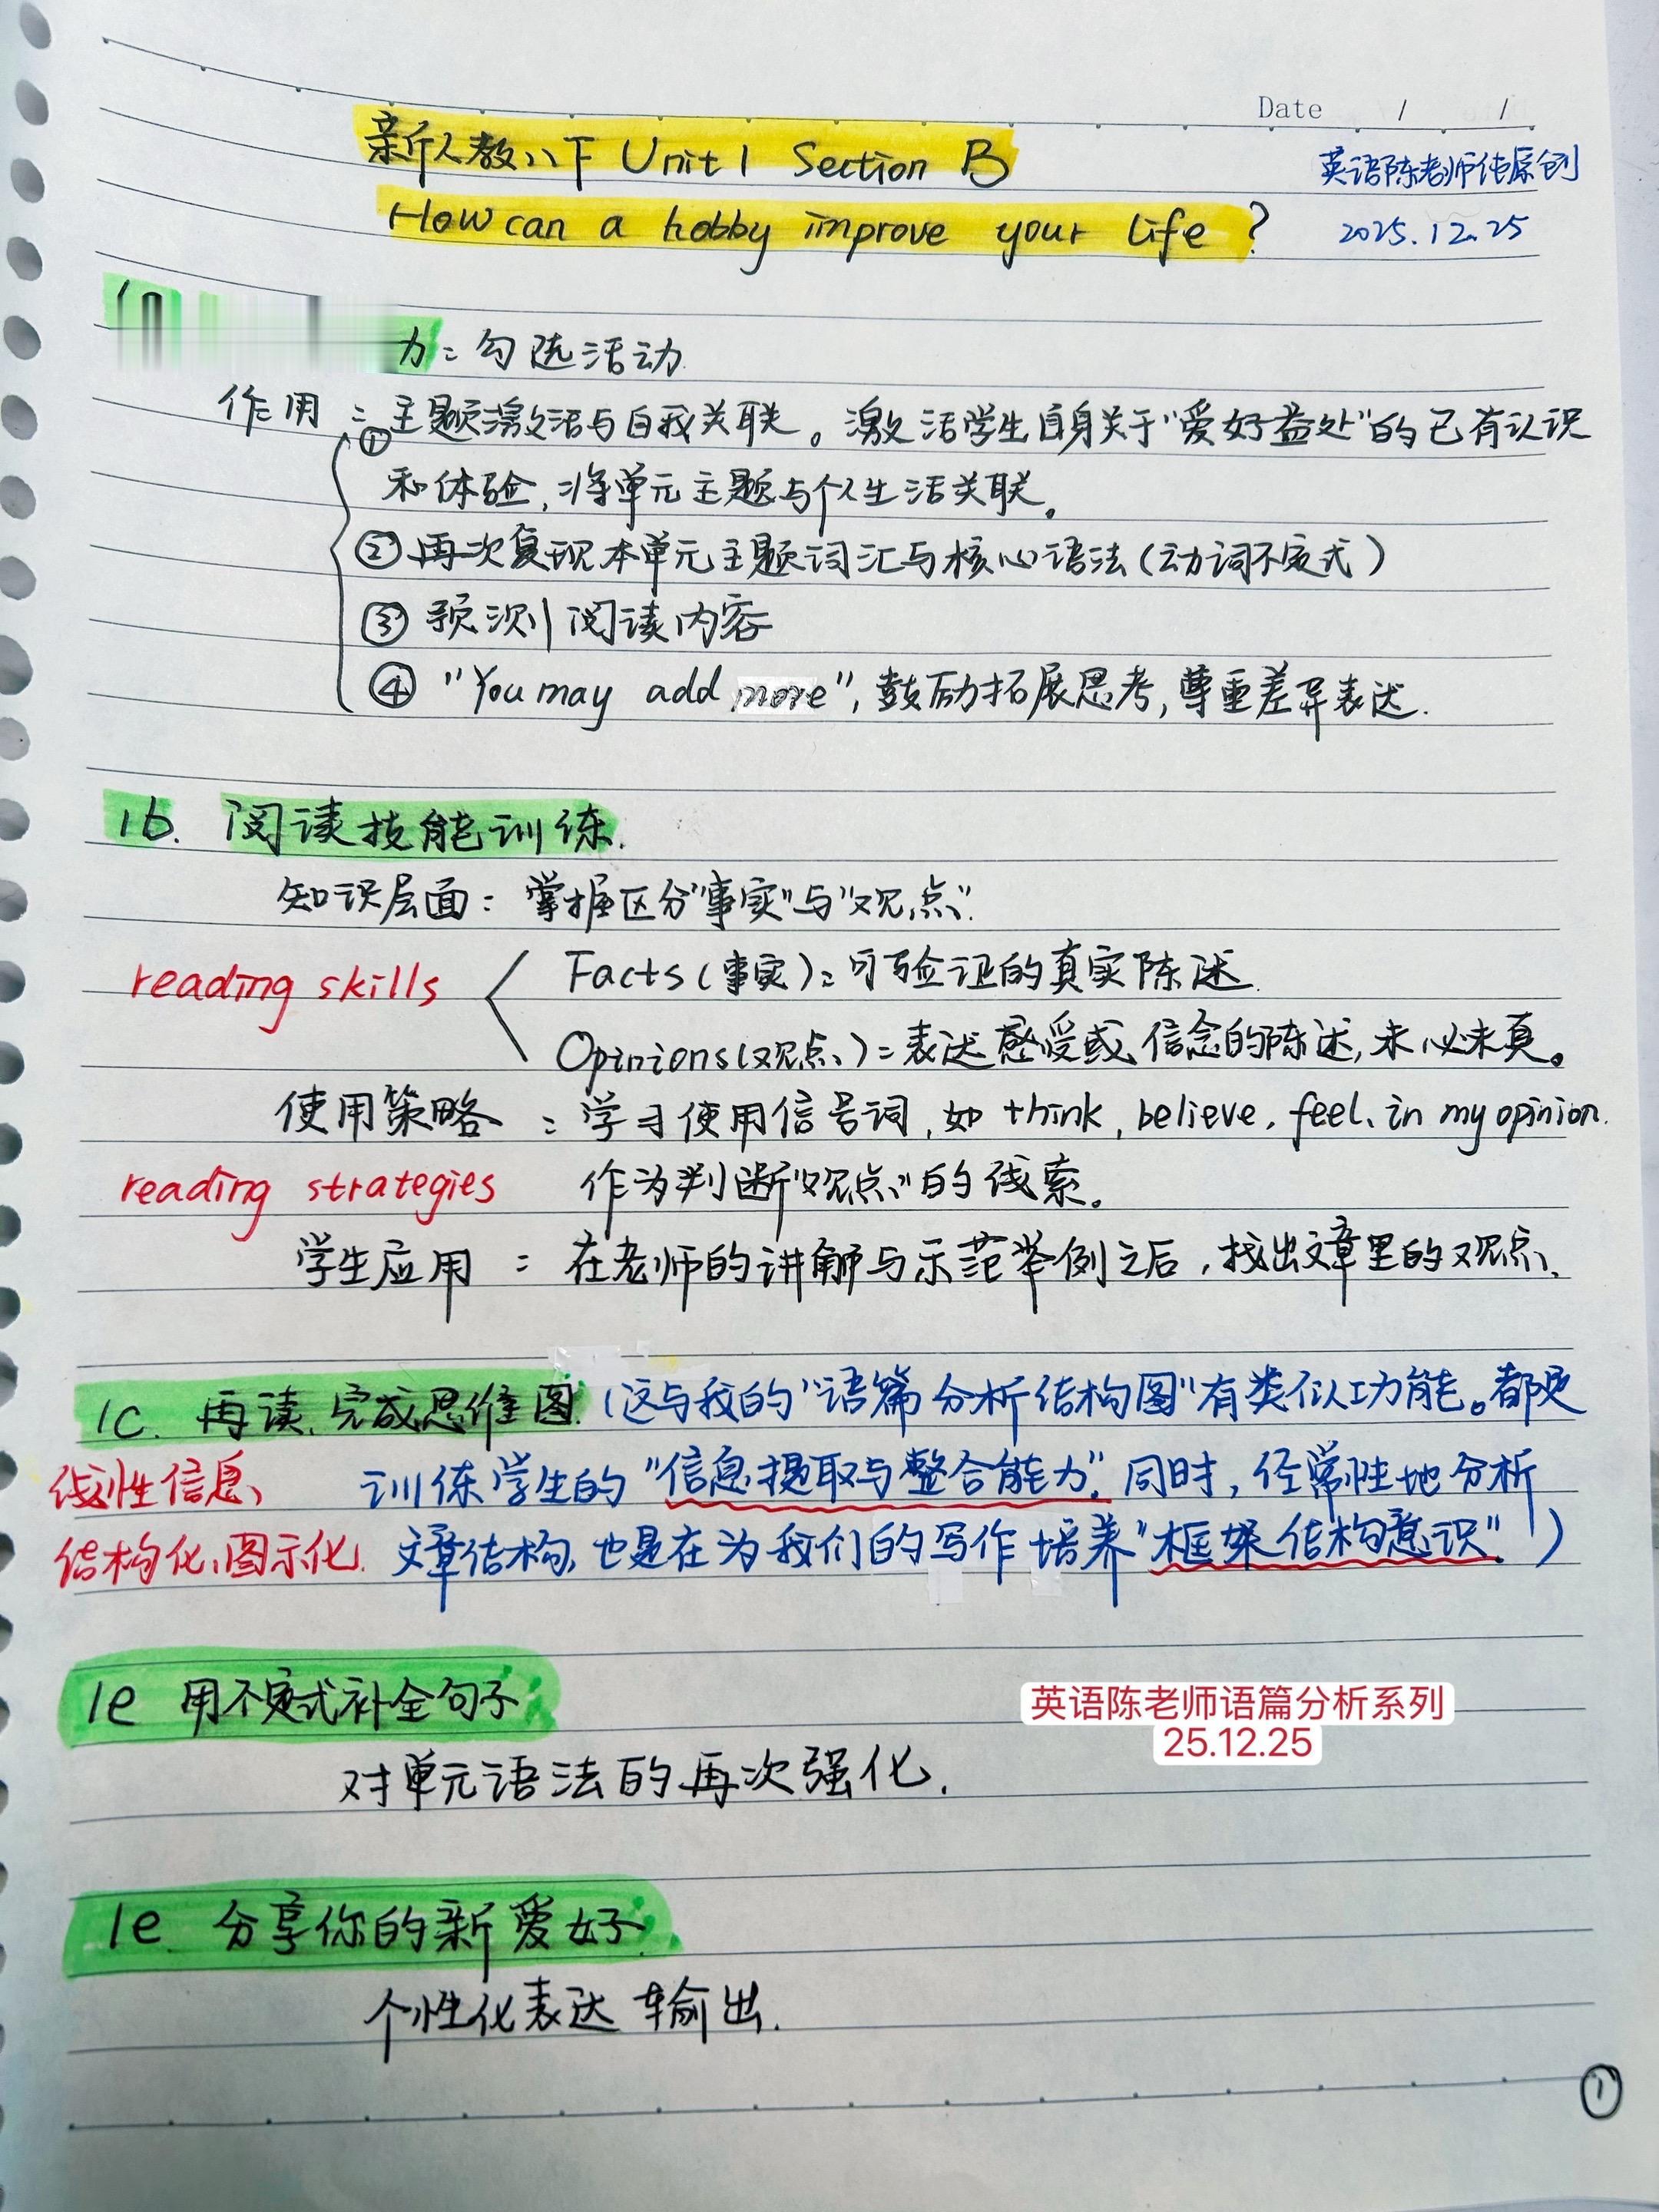 Date / /
新人教八下 Unit 1 Section B
英语陈老师纯原创
How can a hobby improve your life?
2025.12.25
力：勾选活动
作用：①主题激活与自我关联。激活学生自身关于"爱好益处"的已有认识
和体验，将单元主题与个人生活关联。
②再次复现本单元主题词汇与核心语法（动词不定式）
③预测阅读内容
④"You may add more"，鼓励拓展思考，尊重差异表达.
1b. 阅读技能训练.
知识层面：掌握区分"事实"与"观点".
reading skills
Facts（事实）：可验证的真实陈述.
Opinions（观点）：表达感受或信念的陈述，未必未真。
使用策略：学习使用信号词，如 think, believe, feel, in my opinion.
reading strategies 作为判断"观点"的线索。
学生应用：在老师的讲解与示范举例之后，找出文章里的观点、
1c. 再读，完成思维图.（这与我的"语篇分析结构图"有类似功能。都是
线性信息、 训练学生的"信息提取与整合能力". 同时，经常性地分析
结构化，图示化. 文章结构，也是在为我们的写作培养"框架结构意识"）
1e 用不定式补全句子
英语陈老师语篇分析系列
25.12.25
对单元语法的再次强化.
1e. 分享你的新爱好.
个性化表达输出.
①